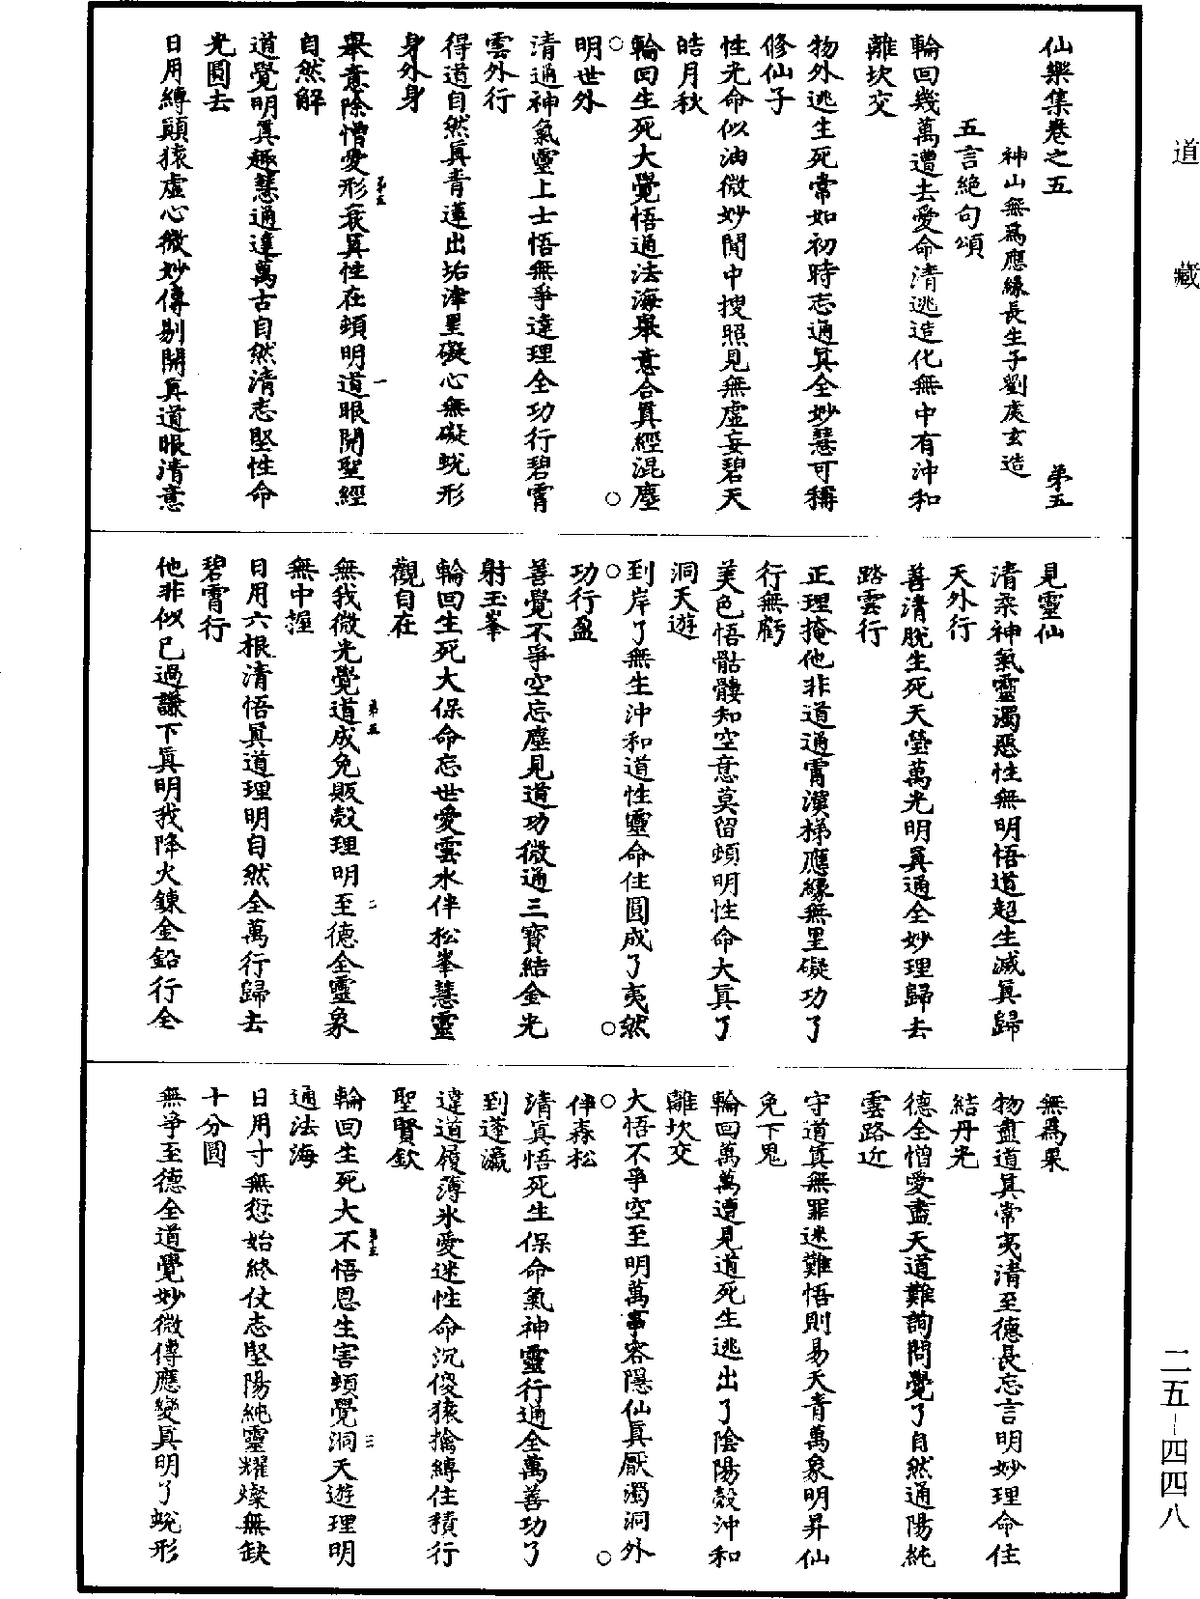 道藏
仙樂集卷之五 弟五
神山無為應緣長生子劉處玄造
五言絕句頌
輪回幾萬遭去愛命清逃造化無中有沖和
離坎交
物外逃生死常如初時志通眞全妙慧可稱
修仙子
性光命似油微妙閒中搜照見無虛妄碧天
皓月秋
輪回生死大覺悟通法海舉意合眞經混塵
明世外
清通神氣靈上士悟無爭達理全功行碧霄
雲外行
得道自然眞青蓮出垢津罣礙心無礙蛻形
身外身
舉意除憎愛形衰眞性在頓明道眼開聖經
自然解
道覺明眞趣慧通達萬古自然清志堅性命
光圓去
日用縛顛猿虛心微妙傳剔開眞道眼清意
見靈仙
清柔神氣靈濁惡性無明悟道超生滅眞歸
天外行
善清脫生死天瑩萬光明眞通全妙理歸去
踏雲行
正理掩他非道通霄漢梯應緣無罣礙功了
行無虧
美色悟骷髏知空意莫留頓明性命大眞了
洞天遊
到岸了無生沖和道性靈命住圓成了夷然
功行盈
善覺不爭空忘塵見道功微通三寶結金光
射玉峯
輪回生死大保命忘世愛雲水伴松峯慧靈
觀自在
無我微光覺道成免販殼理明至德全靈象
無中握
日用六根清悟眞道理明自然全萬行歸去
碧霄行
他非似己過謙下眞明我降火鍊金鉛行全
無為果
物盡道眞常夷清至德長忘言明妙理命住
結丹光
德全憎愛盡天道難詢問覺了自然通陽純
雲路近
守道眞無罪迷難悟則易天青萬象明昇仙
免下鬼
輪回萬萬遭見道死生逃出了陰陽殼沖和
離坎交
大悟不爭空至明萬事容隱仙眞厭濁洞外
伴森松
清眞悟死生保命氣神靈行通全萬善功了
到蓬瀛
違道履薄氷愛迷性命沉傻猿擒縛住積行
聖賢欽
輪回生死大不悟恩生害頓覺洞天遊理明
通法海
日用寸無愆始終仗志堅陽純靈耀燦無缺
十分圓
無爭至德全道覺妙微傳應變眞明了蛻形
二五-四四八